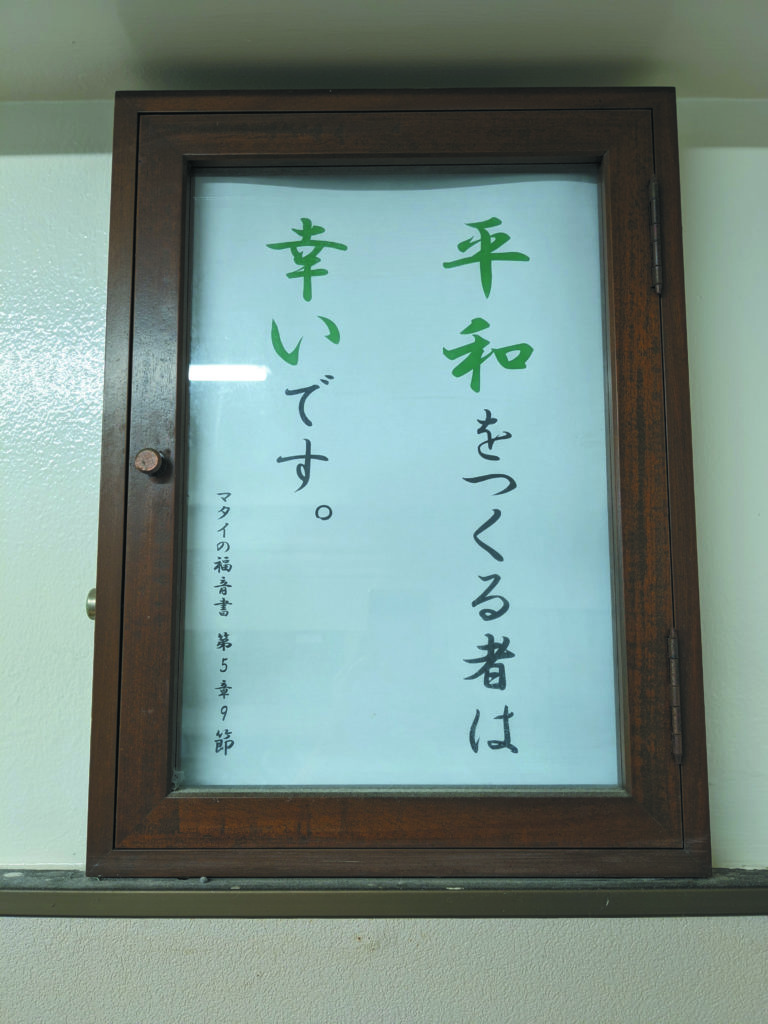 平和をつくる者は
幸いです。
マタイの福音書 第5章9節